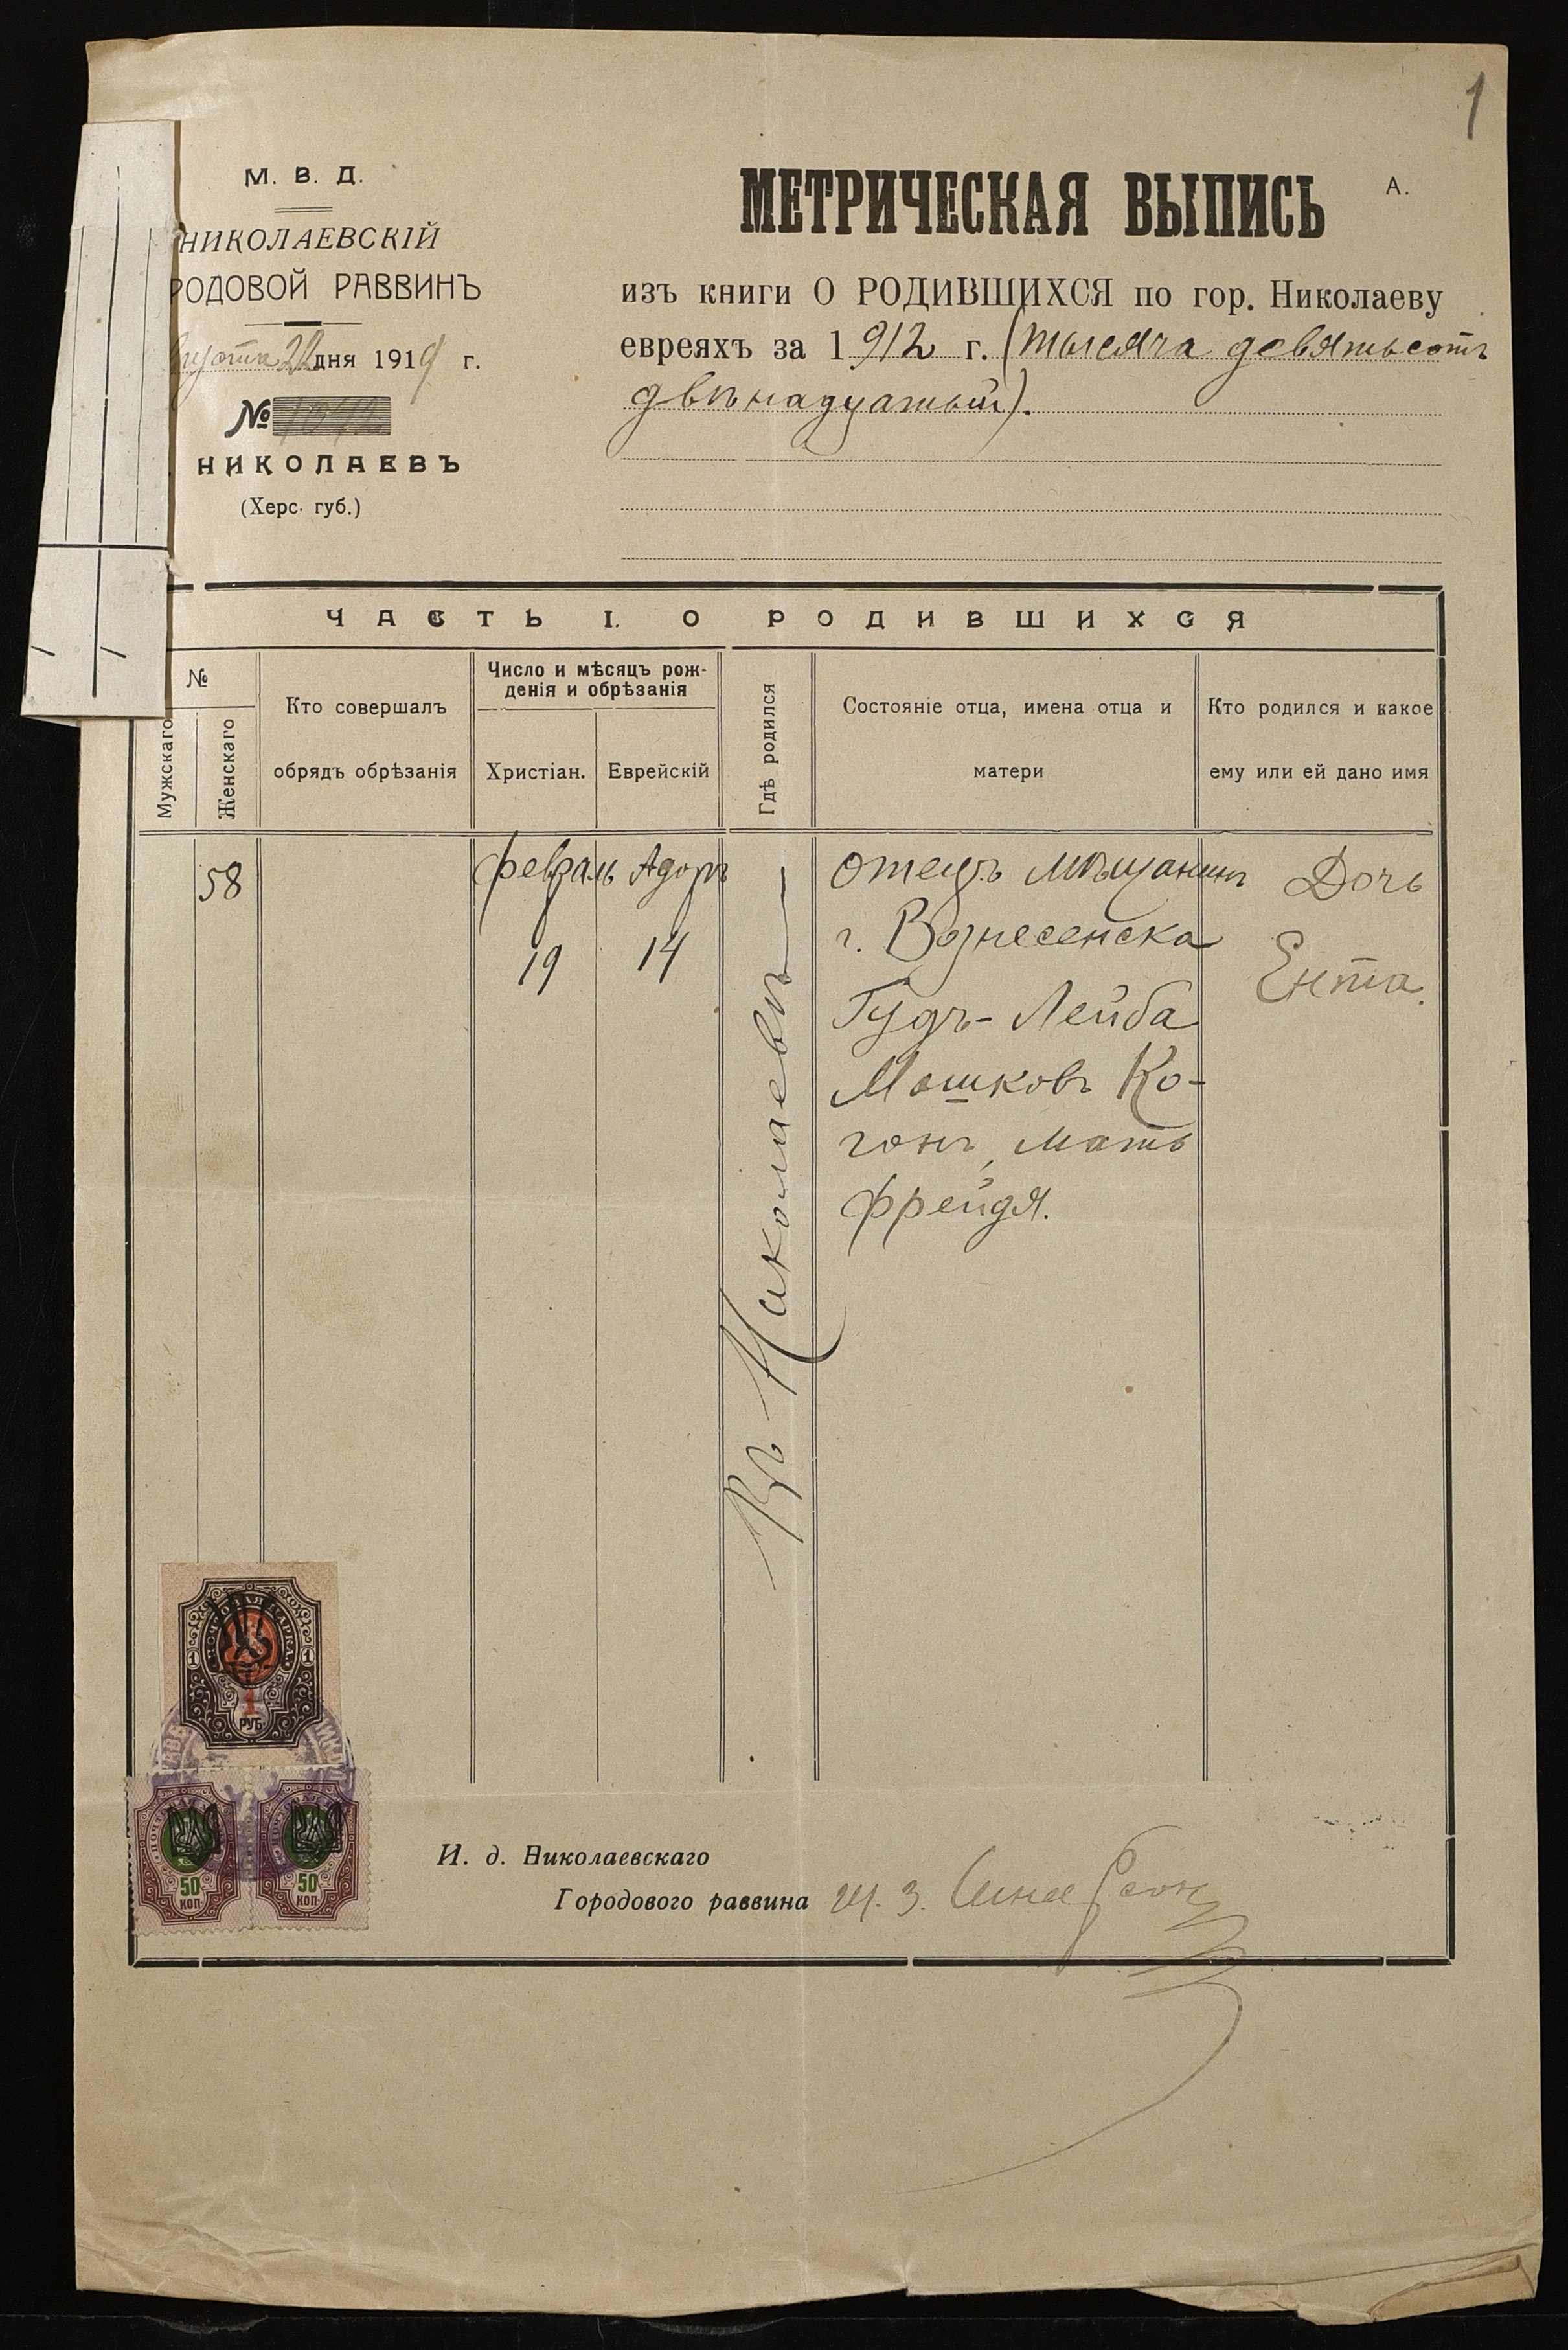 1
М. В. Д.
НИКОЛАЕВСКІЙ
РОДОВОЙ РАВВИНЪ
22 дня 1919 г.
№ 1042
НИКОЛАЕВЪ
(Херс. губ.)
МЕТРИЧЕСКАЯ ВЫПИСЬ
А.
изъ книги О РОДИВШИХСЯ по гор. Николаеву
евреяхъ за 1912 г. (тысяча девятьсотъ
двѣнадцатый).
ЧАСТЬ I. О РОДИВШИХСЯ
№
Мужскаго
Женскаго
Кто совершалъ
обрядъ обрѣзанія
Число и мѣсяцъ рож-
денія и обрѣзанія
Христіан.
Еврейскій
Гдѣ родился
Состояніе отца, имена отца и
матери
Кто родился и какое
ему или ей дано имя
58
февраль
19
Адоръ
14
Въ Николаевѣ
Отецъ мѣщанинъ
г. Вознесенска
Гудъ-Лейба
Мошковъ Ко-
гонъ, мать
Фрейдя.
Дочь
Ента.
ПОЧТОВАЯ МАРКА
1 1
1
РУБ
50
КОП
50
КОП
И. д. Николаевскаго
Городового раввина